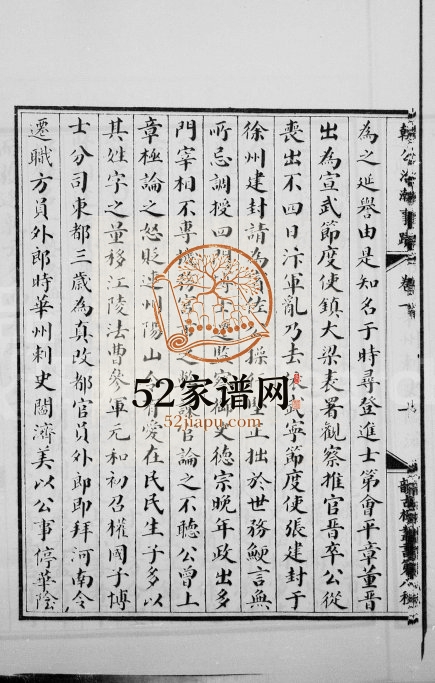 為之延譽由是知名于時尋登進士第會平章董晉
出為宣武節度使鎮大梁表署觀察推官晉卒公從
喪出不四日汴軍亂乃去武寧節度使張建封于
徐州建封請為賓佐操堅正拙於世務鯁言無
所忌調授四門博士遷監察御史德宗晚年政出多
門宰相不專機務宮市之弊諫官論之不聽公曾上
章極論之怒貶連州陽山令有愛在民民生子多以
其姓字之量移江陵法曹參軍元和初召權國子博
士分司東都三歲為真改都官員外郎即拜河南令
遷職方員外郎時華州刺史閻濟美以公事停華陰
52家谱网
52jiapu.com